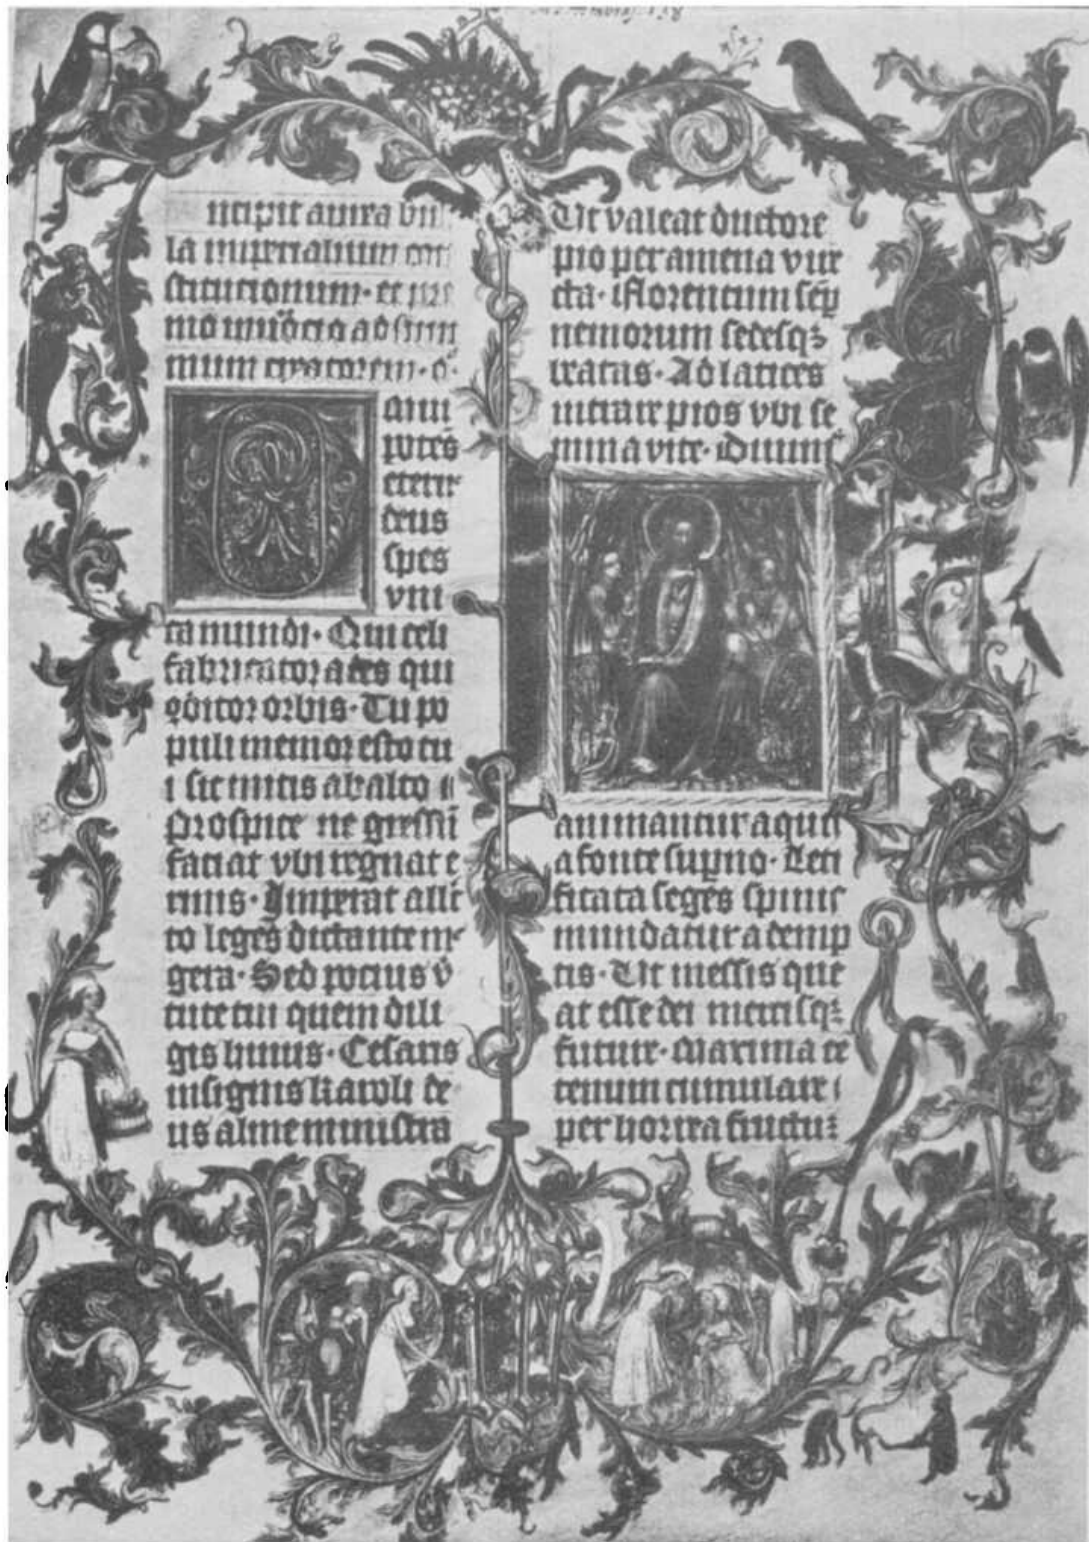 ncipit aurea bul
la imperialium con
stitucionum · et pri
mo inuocacio ad sum
mum creatorem · O
mni
potēs
eterne
deus
spes
vni
ca mundi · Qui celi
fabricator ades qui
cōditor orbis · Tu po
puli memor esto tu
i sic mitis ab alto
Prospice ne gressū
faciat vbi regnat e
rinis · Imperat alle
to legēs dictante me
gera · Sed pocius v̄
tute tui quem dili
gis huius · Cesaris
insignis karoli de
us alme ministra
Ut valeat ductore
pio per amena vire
cta · Florentum sēꝑ
nemorum sedesqꝫ
beatas · Ad latices
intrare pios vbi se
mina vite · Diuinis
animantur aquis
a fonte suꝑno · Leti
ficata seges spinis
mundatur ademp
tis · Ut messis que
at esse dei mercisqꝫ
future · Maxima ce
tenum cumulare
per horrea fructuꝫ